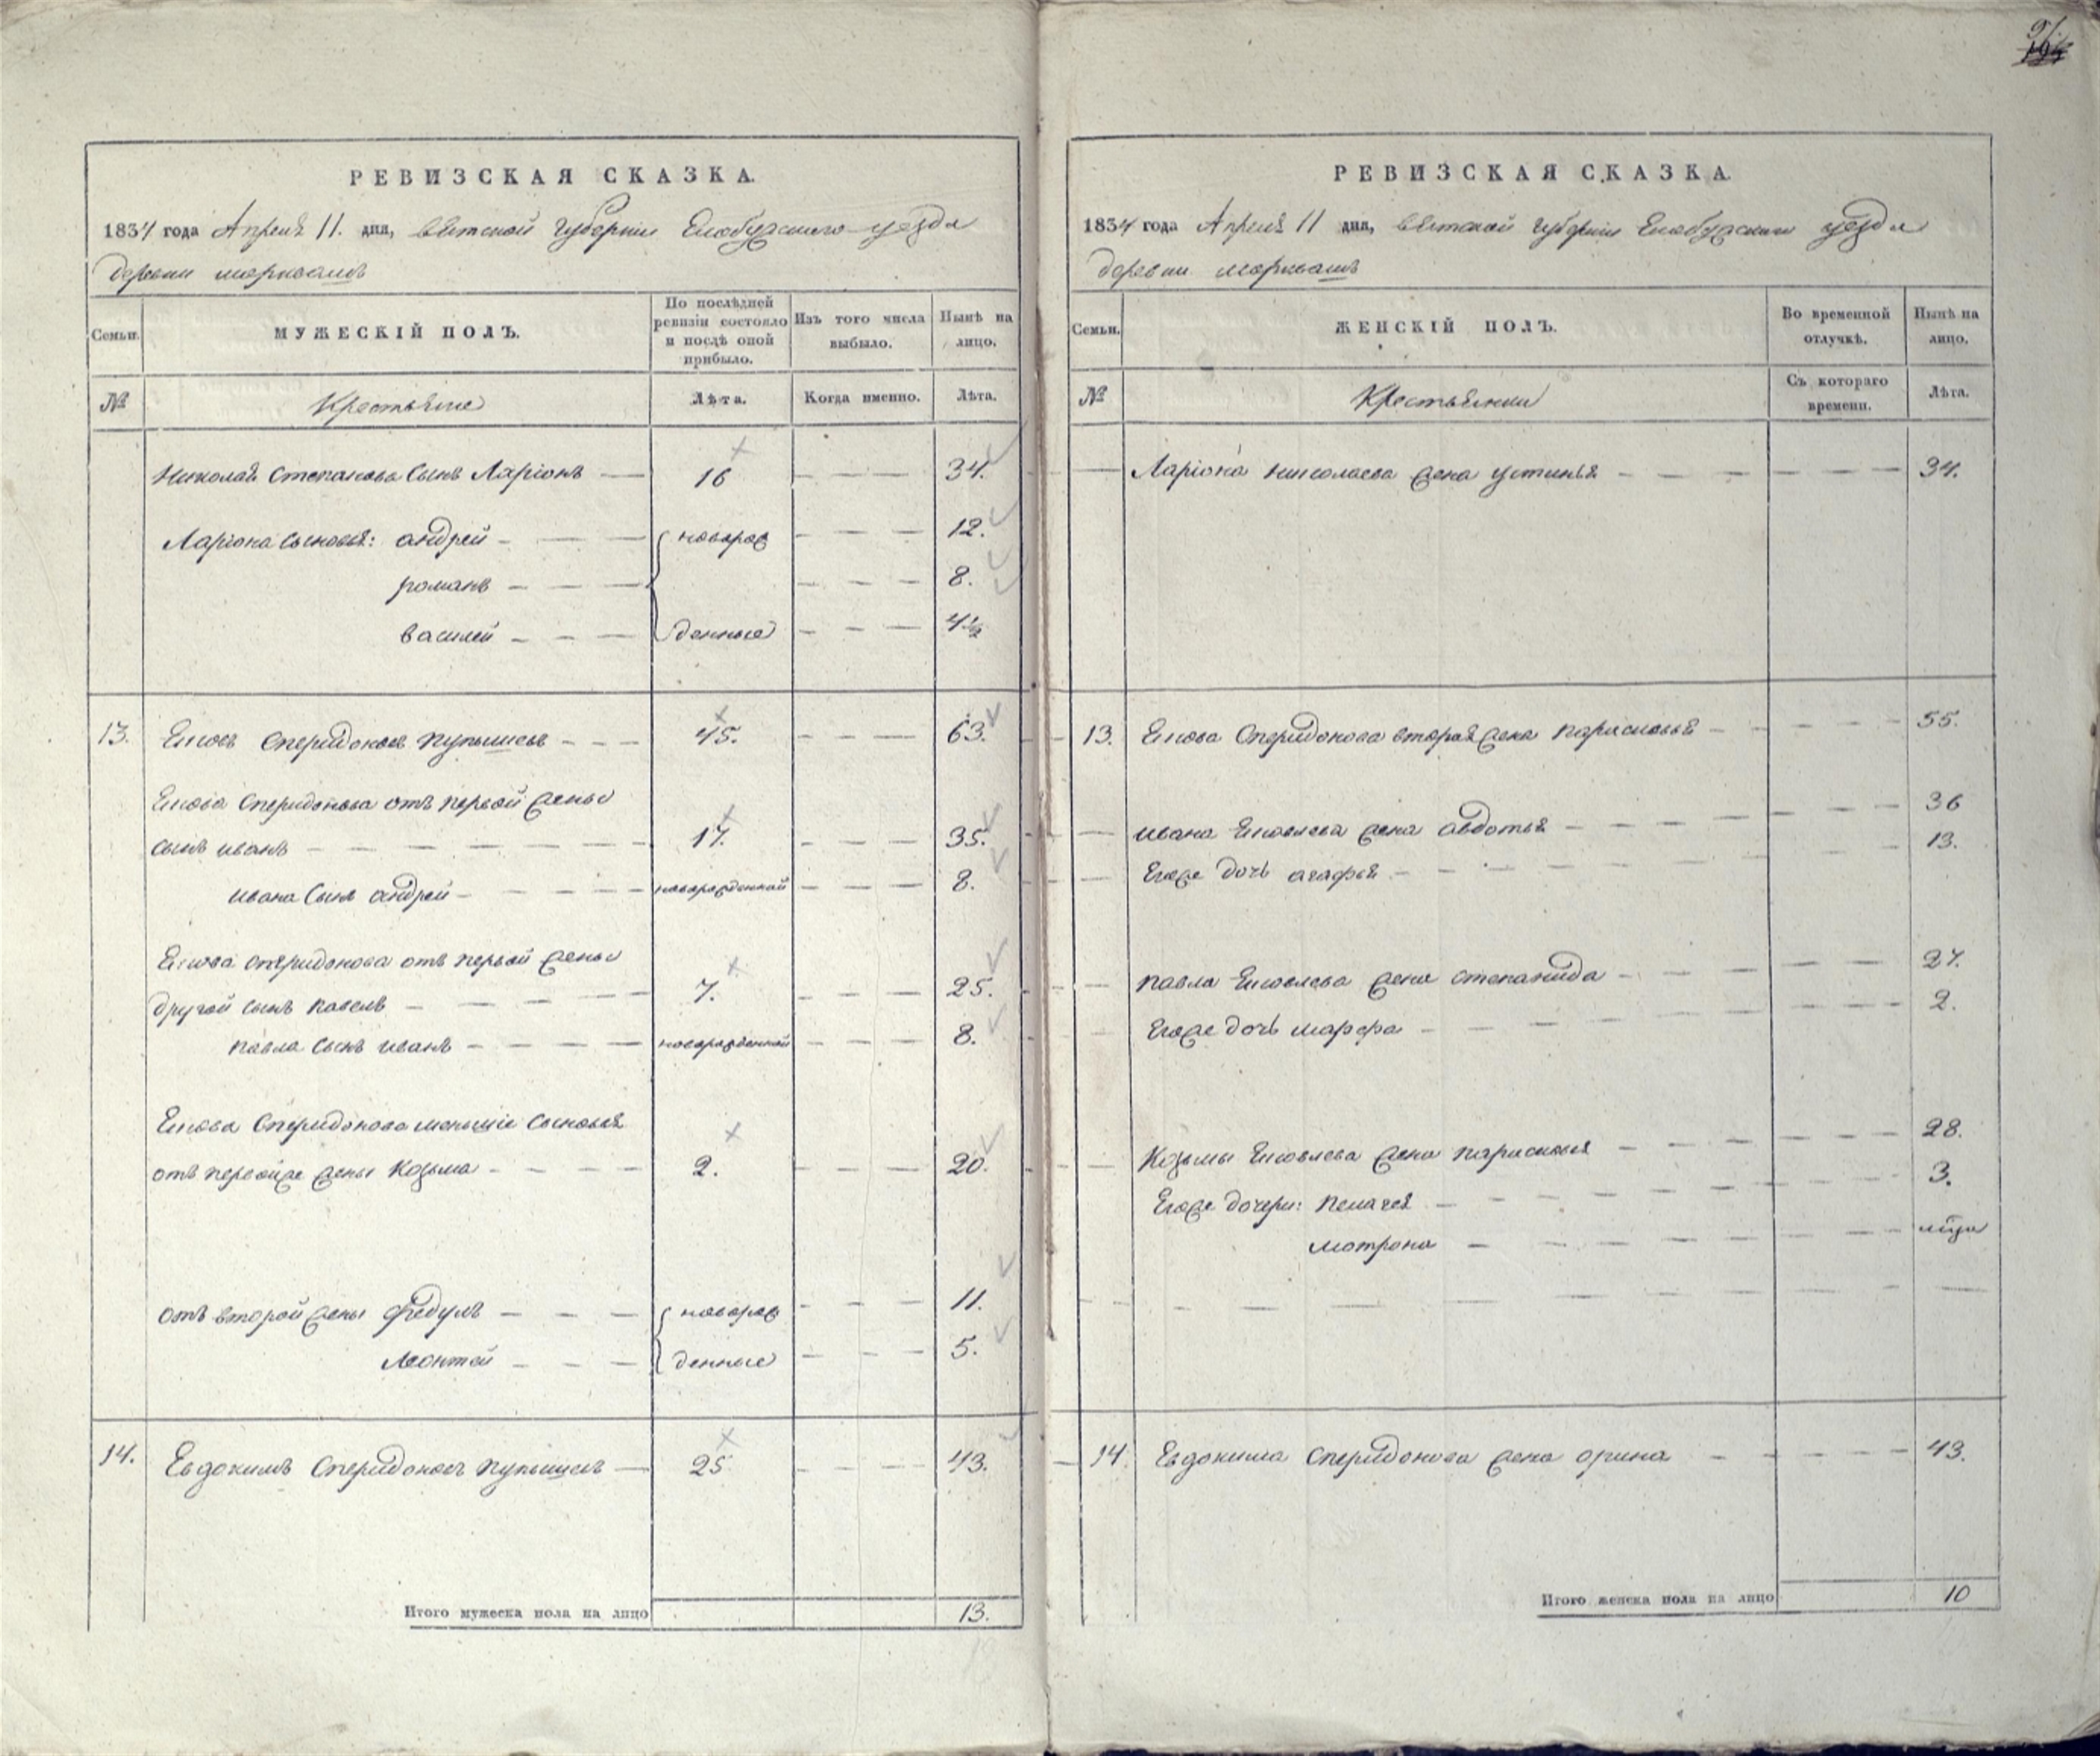 РЕВИЗСКАЯ СКАЗКА.
1834 года Апреля 11. дня, вятской губернии Елабужскаго уезда
деревни
Семьи.
МУЖЕСКІЙ ПОЛЪ.
По послѣдней ревизіи состояло и послѣ оной прибыло.
Изъ того числа выбыло.
Нынѣ на лицо.
№
Крестьяне
Лѣта.
Когда именно.
Лѣта.
Николая Степанова Сынъ Ларіонъ — 16 — — — 34.
Ларіона сыновья: андрей — новорож — — — 12.
романъ — — — 8.
василей — денные — — — 4½
13. Яковъ Спиридоновъ — — — 45. — — — 63.
Якова Спиридонова отъ первой жены
сынъ иванъ — 17. — — — 35.
ивана Сынъ андрей — новорожденной — — — 8.
Якова Спиридонова отъ первой жены
другой сынъ павелъ — 7. — — — 25.
павла сынъ иванъ — новорожденной — — — 8.
Якова Спиридонова меньшіе Сыновья
отъ первойже жены Козьма — 2. — — — 20.
отъ второй жены Федулъ — новорож — — — 11.
Леонтей — денные — — — 5.
14. Евдокимъ Спиридоновъ — 25 — — — 43.
Итого мужеска пола на лицо 13.
РЕВИЗСКАЯ СКАЗКА.
1834 года Апреля 11 дня, вятской губернии Елабужскаго уезда
деревни
Семьи.
ЖЕНСКІЙ ПОЛЪ.
Во временной отлучкѣ.
Нынѣ на лицо.
№
Крестьянки
Съ котораго времени.
Лѣта.
— Ларіона николаева жена устинья — — — 34.
13. Якова Спиридонова вторая жена парасковья — — — 55.
— ивана Яковлева жена авдотья — — — 36
— Егоже дочь агафья — — — 13.
— павла Яковлева жена степанида — — — 27.
Егоже дочь марфа — — — 2.
— Козьмы Яковлева жена парасковья — — — 28.
Егоже дочери: пелагея — — — 3.
мотрона — — —
14. Евдокима Спиридонова жена орина — — — 43.
Итого женска пола на лицо 10